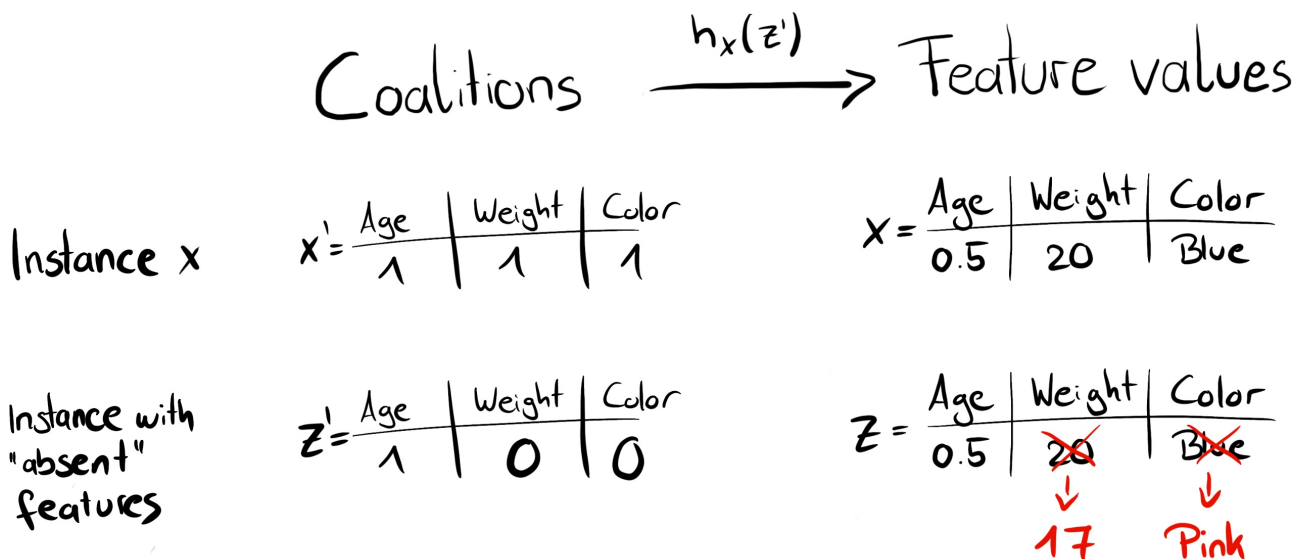 Coalitions hₓ(z') Feature values
Instance x
x'= Age Weight Color
1 1 1
x = Age Weight Color
0.5 20 Blue
Instance with
"absent"
features
z'= Age Weight Color
1 0 0
z = Age Weight Color
0.5 20 Blue
17 Pink